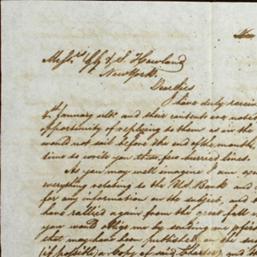 New
Messrs G. G. & S. Howland
New York.
Dear Sirs
I have duly receiv
4th January ulto and their contents are noted
opportunity of replying to them as in the
would not sail before the end of the month,
time to write you these few hurried lines.
As you may well imagine I am
everything relating to the U.S. Bank and
for any information on the subject, and
have rallied again from the great fall
you would oblige me by sending me
that may have been published on the
(if possible) a copy of said Charter) and t